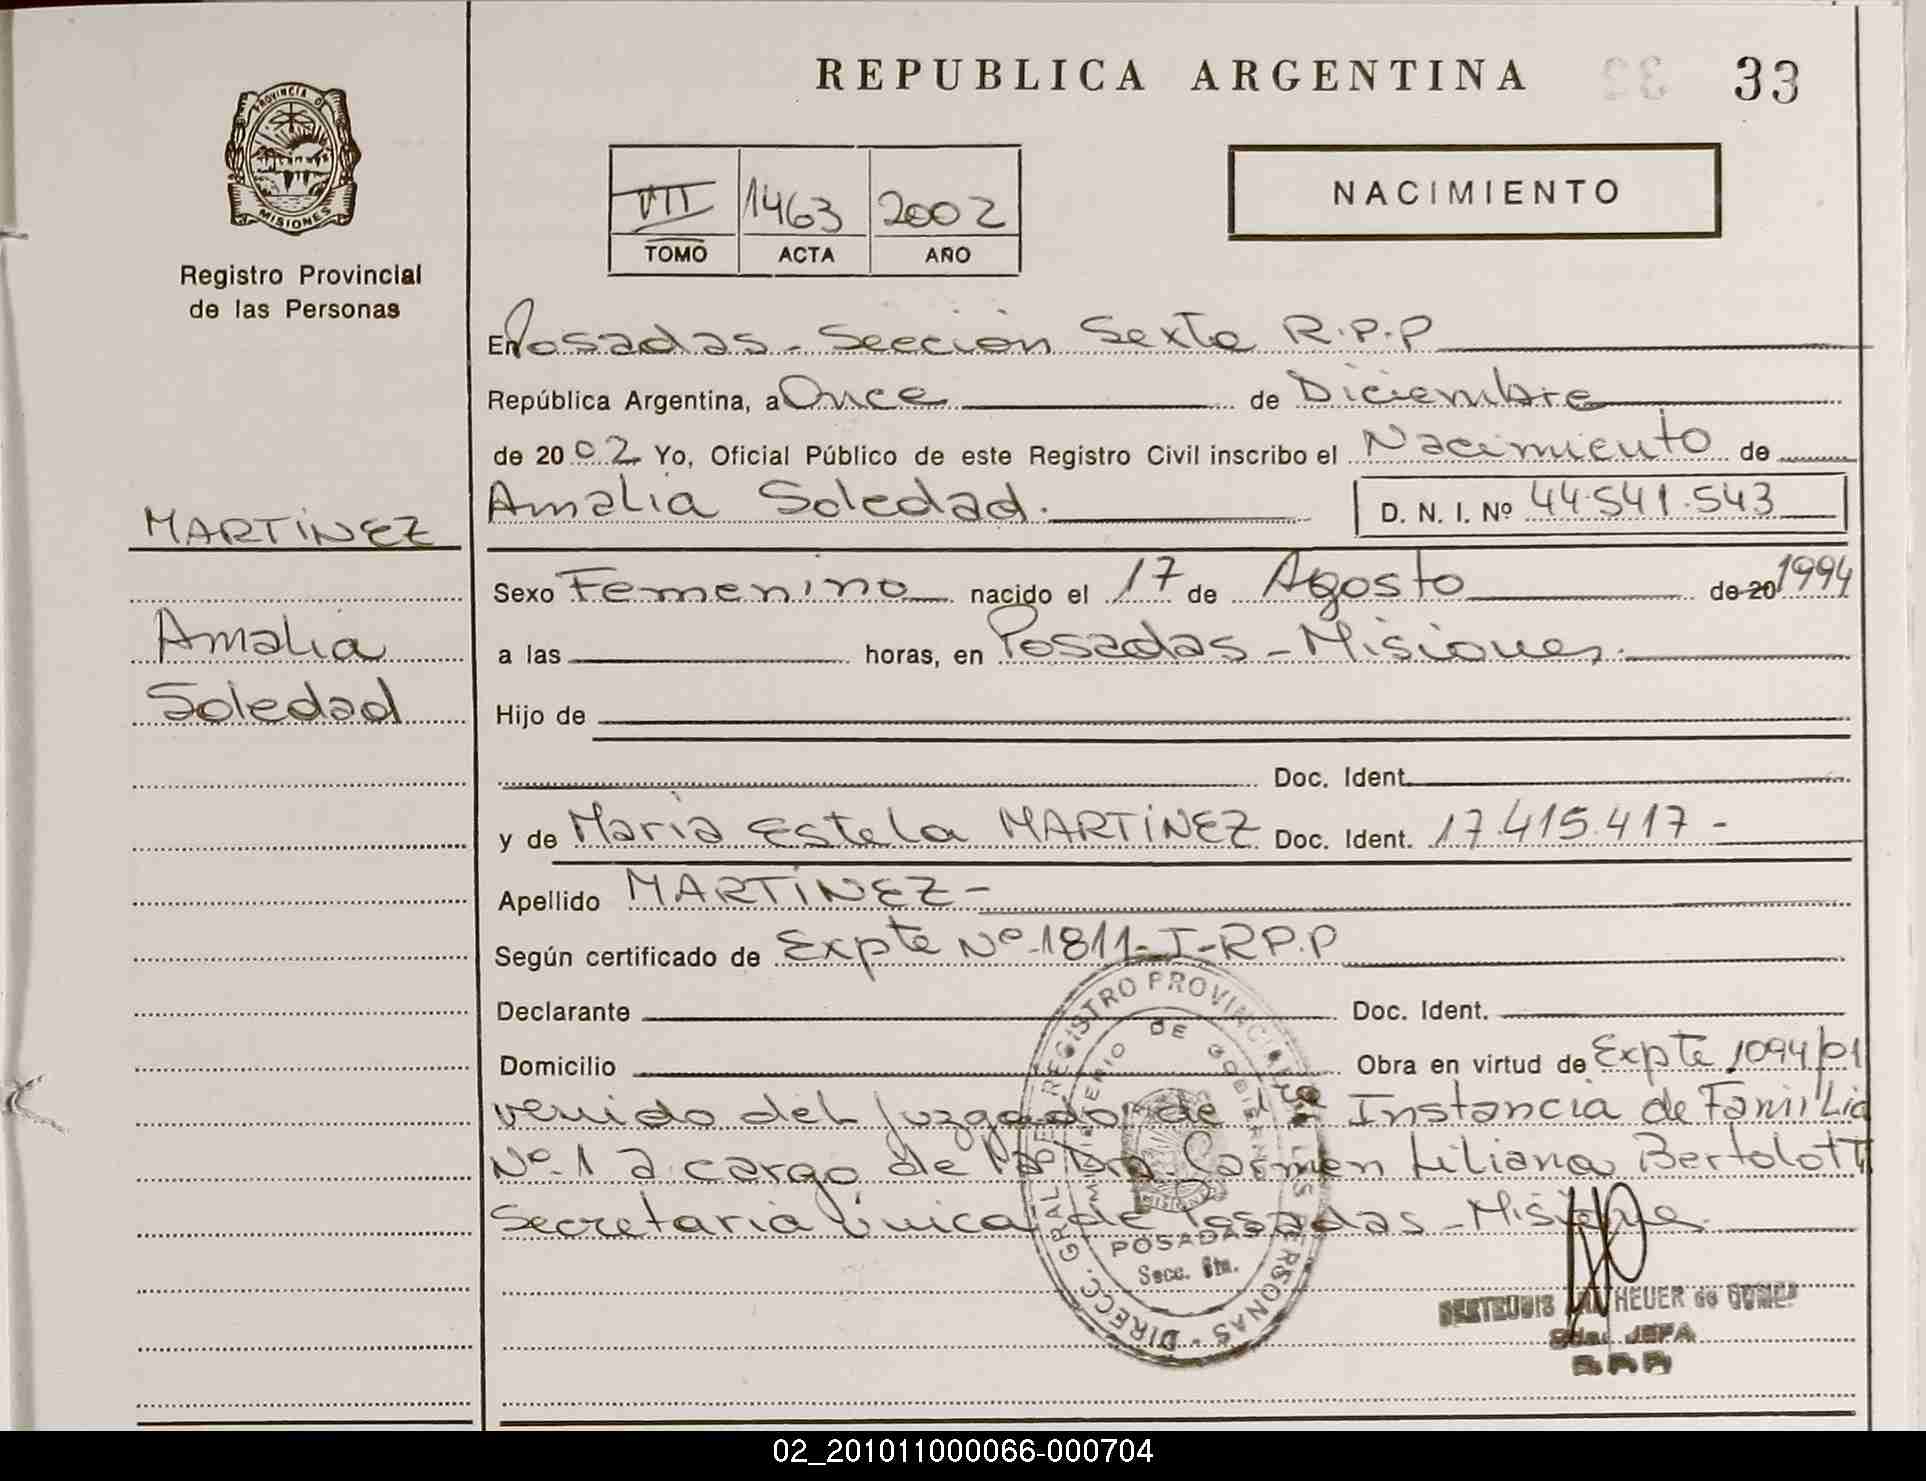 REPUBLICA ARGENTINA
33
PROVINCIA D
MISIONES
Registro Provincial
de las Personas
VII 1463 2002
TOMO ACTA AÑO
NACIMIENTO
En Posadas - Sección Sexta R.P.P
República Argentina, a Once de Diciembre
de 20 02 Yo, Oficial Público de este Registro Civil inscribo el Nacimiento de
Amalia Soledad. D. N. I. Nº 44.541.543
MARTINEZ
Amalia
Soledad
Sexo Femenino nacido el 17 de Agosto de 20 1994
a las horas, en Posadas - Misiones.
Hijo de
Doc. Ident.
y de Maria Estela MARTINEZ Doc. Ident. 17.415.417 -
Apellido MARTINEZ -
Según certificado de Expte Nº 1811-I-RP.P
Declarante Doc. Ident.
Domicilio Obra en virtud de Expte 1094/01
venido del Juzgado de 1ra Instancia de Familia
Nº 1 a cargo de la Dra. Carmen Liliana Bertolotti
Secretaria Única de Posadas - Misiones.
DIRECC. GRAL DE REGISTRO PROVINCIAL DE LAS PERSONAS -
MINISTERIO DE GOBIERNO
POSADAS
Secc. 6ta.
HEUER de
JEFA
R.P.P
02_201011000066-000704